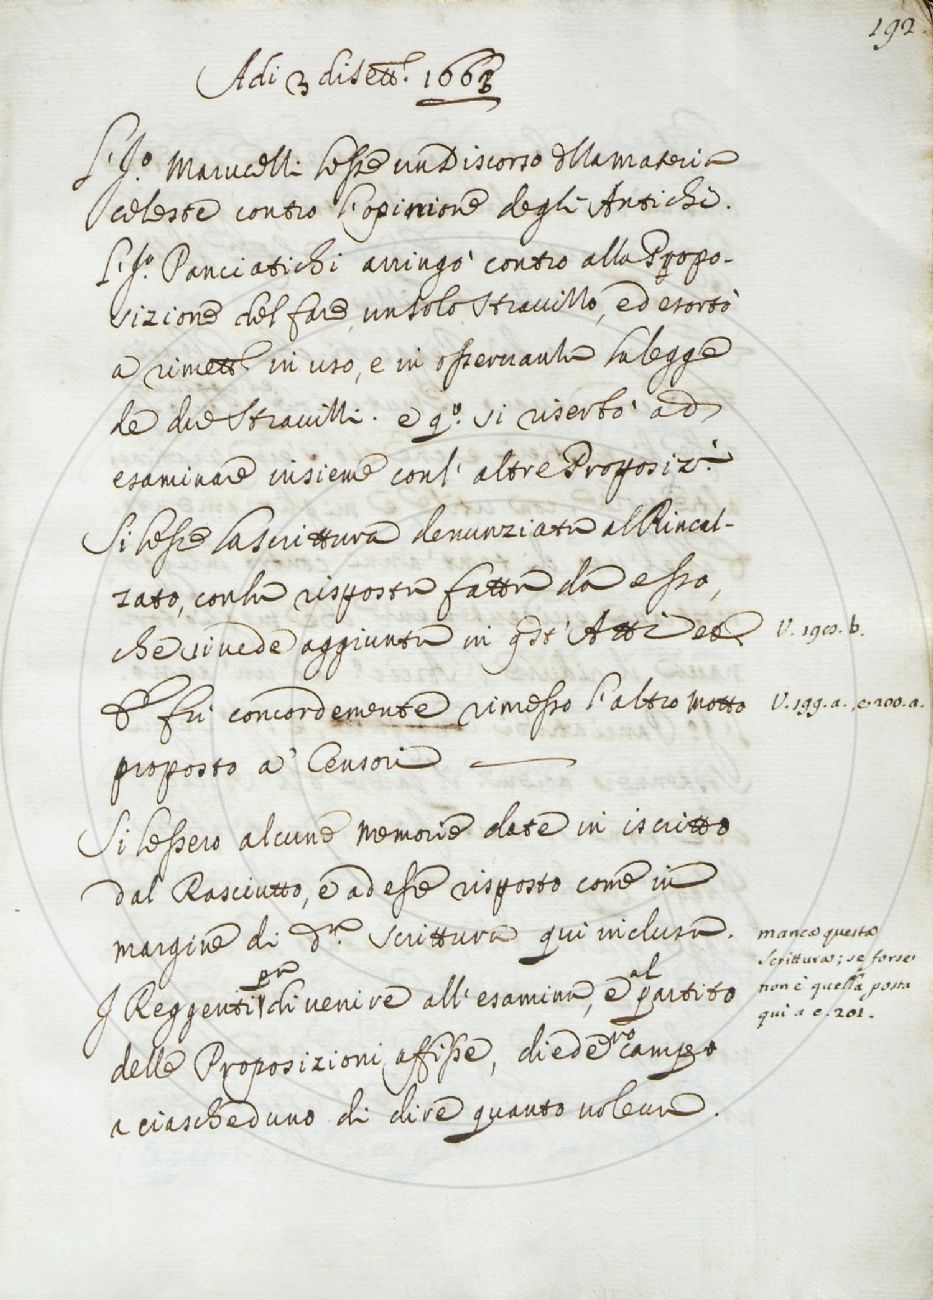 192.
Adi 3 di Sett. 1663
L'Jo. Marucelli lesse un Discorso dlla materia
celeste contro l'opinione degli Antichi.
L'Jo. Panciatichi arringò contro alla Propo-
sizione del fare un solo Stravillo, ed esortò
a rimett. in uso, e in osservanza la legge
de due Stravilli. e qo. si riserbò ad
esaminare insieme con l'altre Proposiz.i
Si lesse la scrittura denunziata al Rincal-
zato, con la risposta fatta da esso,
che si vede aggiunta in qsti Atti et V. 190. b.
fu concordemente rimesso l'altro motto V. 199. a. e 200. a.
proposto a' Censori
Si lessero alcune memorie date in iscritto
dal Rasciutto, e ad esse risposto come in
margine di d.ta scrittura qui inclusa.
manca questa
scrittura; se forse
non è quella posta
qui a c. 201.
I Reggenti pa di venire all'esamina, e al partito
delle Proposizioni affisse, diedero campo
a ciascheduno di dire quanto voleva.